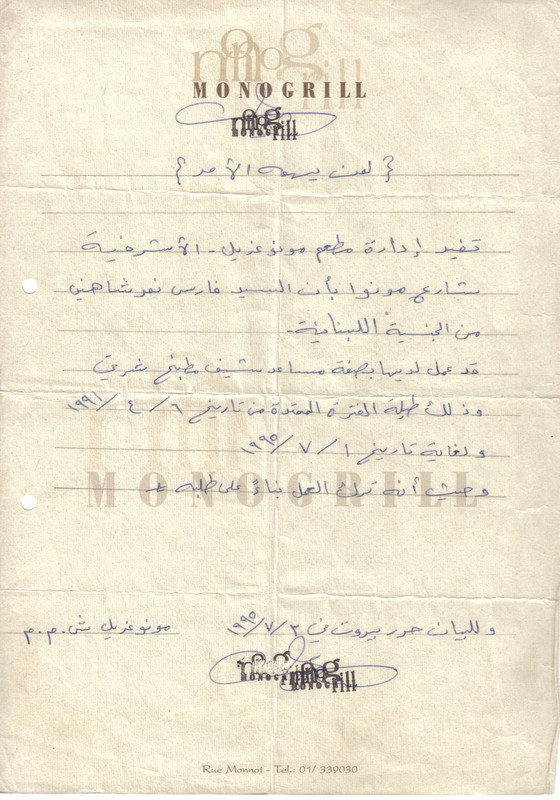 monogrill
MONOGRILL
monogrill
MONOGRILL
{ لمن يهمه الأمر }
تفيد إدارة مطعم مونوغريل - الأشرفية
شارع مونوا بأن السيد فارس نمر شاهين
من الجنسية اللبنانية -
قد عمل لديها بصفة مساعد شيف مطبخ غربي
وذلك طيلة الفترة الممتدة من تاريخ ٦/٤/١٩٩١
ولغاية تاريخ ١/٧/١٩٩٥
وحيث أنه ترك العمل بناءً على طلبه
MONOGRILL
وللبيان حرر بيروت في ٣/٧/١٩٩٥ مونوغريل ش.م.م
monogrill
MONOGRILL
Rue Monnot - Tel.: 01/ 339030